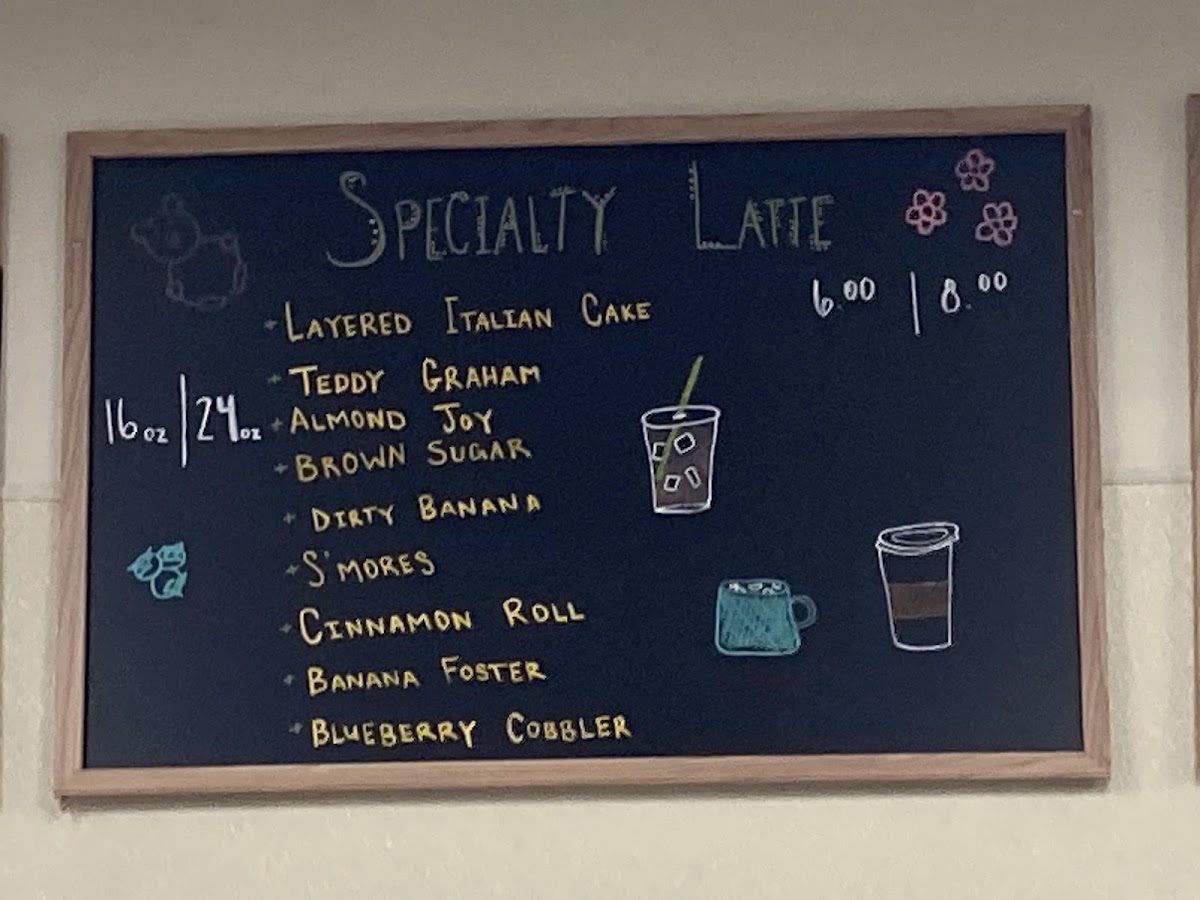 SPECIALTY LATTE
6.00 | 8.00
LAYERED ITALIAN CAKE
TEDDY GRAHAM
16oz | 24oz
ALMOND JOY
BROWN SUGAR
DIRTY BANANA
S'MORES
CINNAMON ROLL
BANANA FOSTER
BLUEBERRY COBBLER